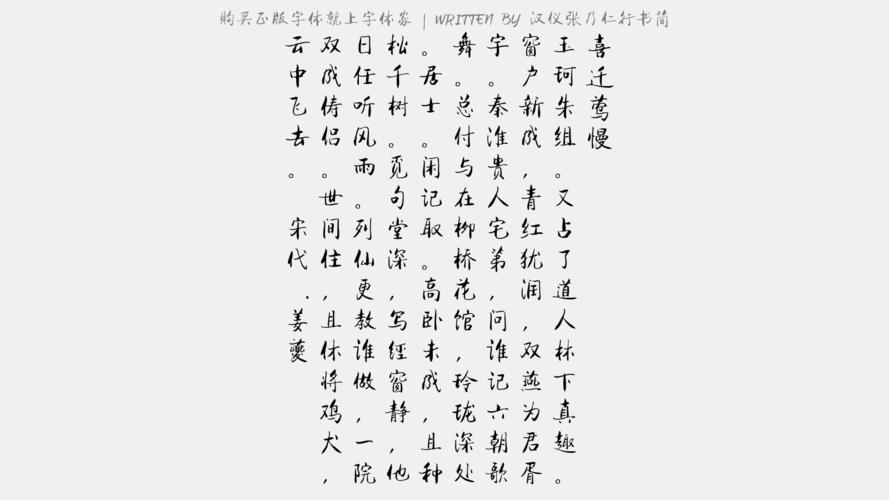 购买正版字体就上字体家 | WRITTEN BY 汉仪张乃仁行书简
喜迁莺慢
玉珂朱组。又占了道人林下真趣。
窗户新成,青红犹润,双燕为君胥
宇。秦淮贵人宅第,问谁记六朝歌
舞。总付与在柳桥花馆,玲珑深处
。居士。闲记取。高卧未成,且种
松千树。觅句堂深,写经窗静,他
日任听风雨。列仙更教谁做,一院
双成俦侣。世间住,且休将鸡犬,
云中飞去。 宋代.姜夔